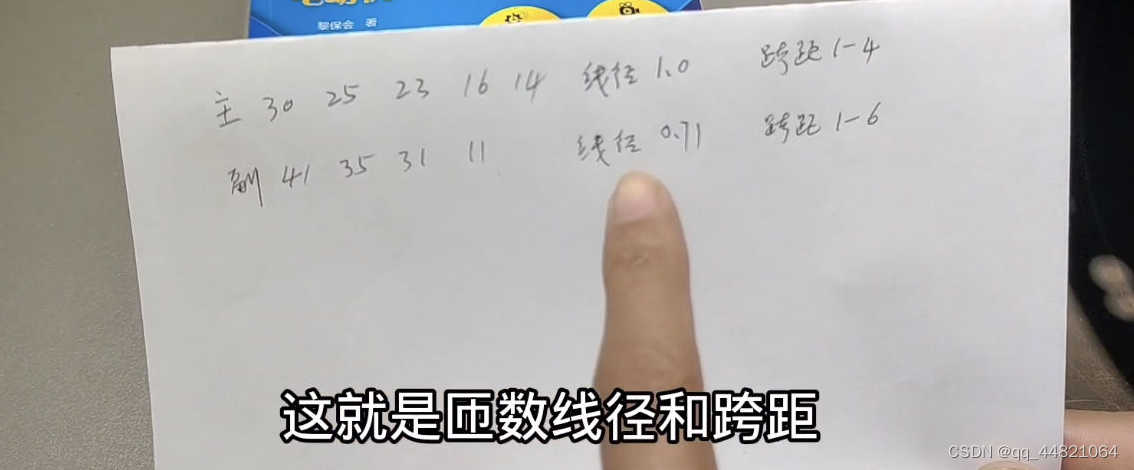 黎保会 著
主 30 25 23 16 14 线径 1.0 跨距 1-4
副 41 35 31 11 线径 0.71 跨距 1-6
这就是匝数线径和跨距
CSDN @qq_44821064